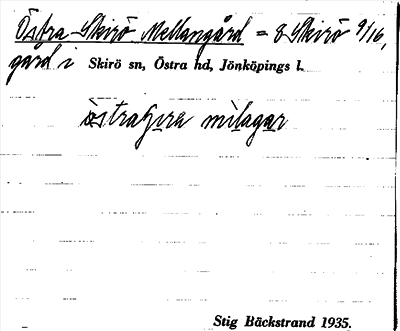 Östra Skirö Mellangård = 8 Skirö 9/16,
gard i Skirö sn, Östra hd, Jönköpings l.
milagar
Stig Bäckstrand 1935.